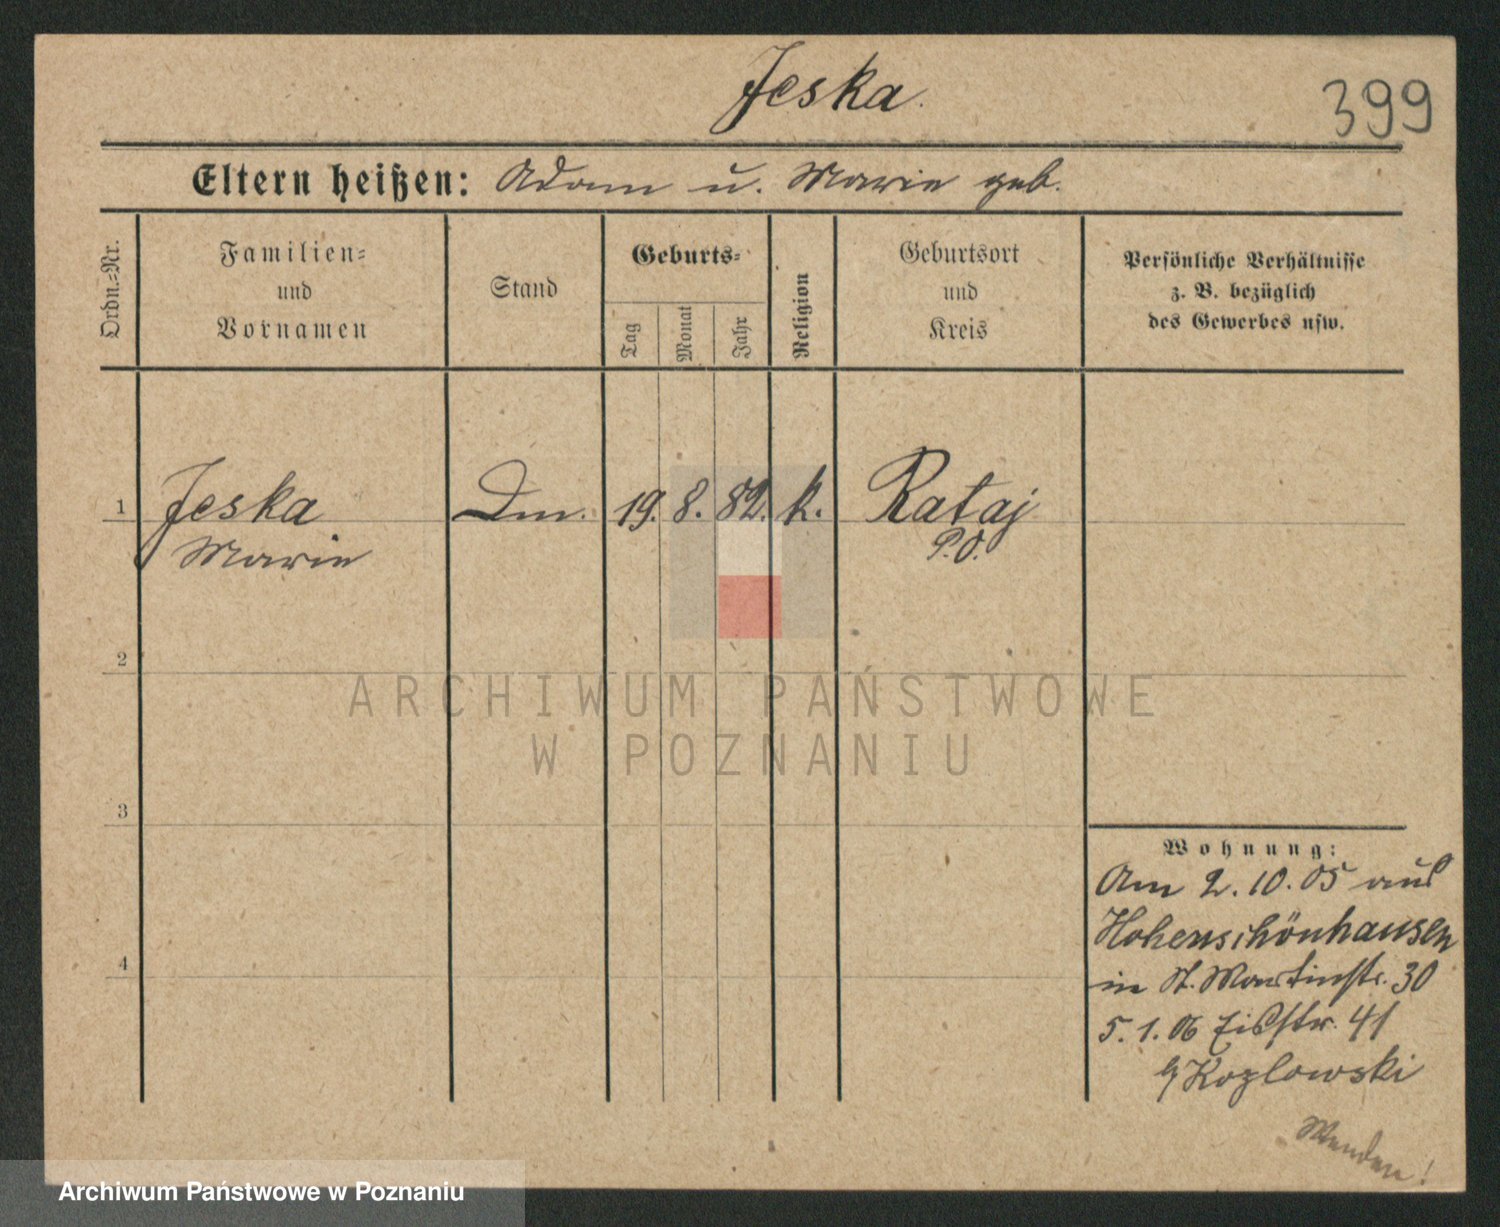 Jeska.
399
Eltern heißen: Adam u. Marie geb.
Ordn.=Nr.
Familien=
und
Vornamen
Stand
Geburts=
Tag
Monat
Jahr
Religion
Geburtsort
und
Kreis
Persönliche Verhältnisse
z. B. bezüglich
des Gewerbes usw.
1 Jeska Dm. 19. 8. 82. k. Rataj
Marie P.O.
2
3
4
Wohnung:
Am 2.10.05 aus
Hohenschönhausen
in St. Martinstr. 30
5.1.06 41
Kozlowski
Wenden!
ARCHIWUM PAŃSTWOWE
W POZNANIU
Archiwum Państwowe w Poznaniu